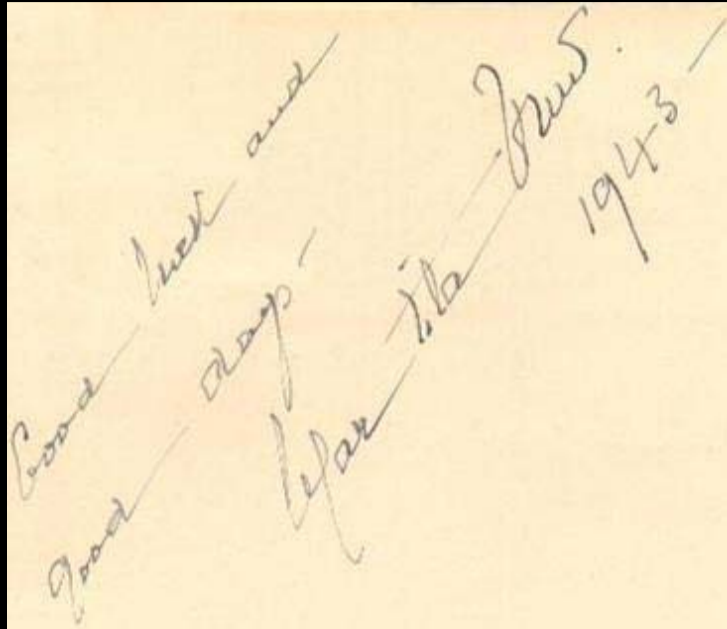 Good luck and
good days –
Martita Hunt.
1943 –